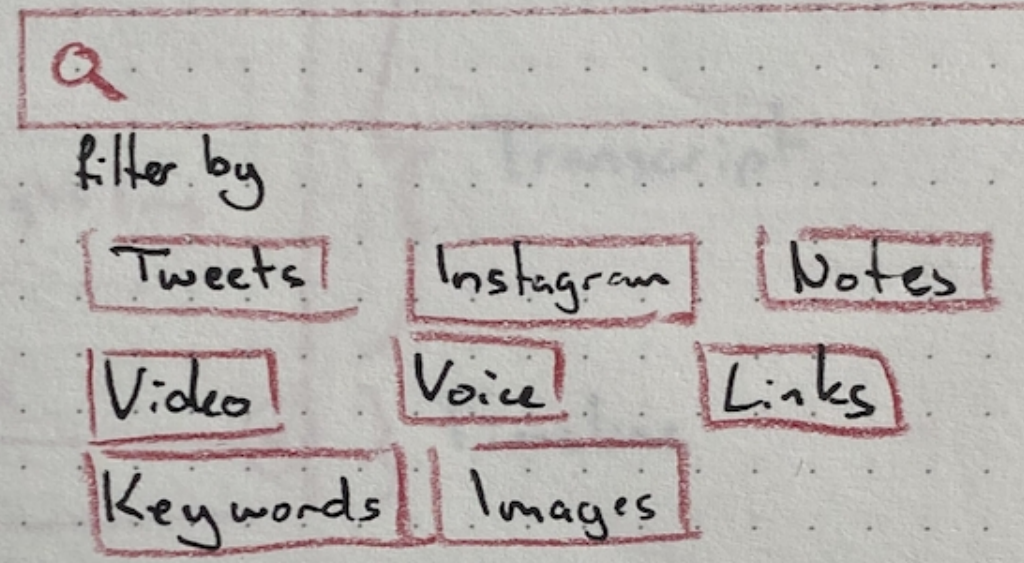 filter by
Tweets Instagram Notes
Video Voice Links
Keywords Images